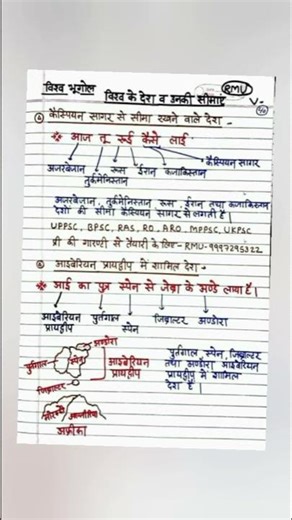 विश्व भूगोल
विश्व के देश व उनकी सीमाएं
RMU
V-
④ कैस्पियन सागर से सीमा रखने वाले देश -
* आज तू रूई कैसे लाई
कैस्पियन सागर
अजरबेजान रूस ईरान कजाकिस्तान
तुर्कमेनिस्तान
अजरबेजान, तुर्कमेनिस्तान रूस, ईरान तथा कजाकिस्तान
देशो की सीमा कैस्पियन सागर से लगती है।
UPPSC, BPSC, RAS, RO, ARO, MPPSC, UKPSC
प्री की गारण्टी से तैयारी के लिए- RMU-9997295322
आइबेरियन प्रायद्वीप में शामिल देश -
* आई का पुत्र स्पेन से जेब्रा के अण्डे लाया है।
आइबेरियन पुर्तगाल जिब्राल्टर अण्डोरा
प्रायद्वीप स्पेन
अण्डोरा
पुर्तगाल स्पेन आइबेरियन
प्रायद्वीप
जिब्राल्टर
पुर्तगाल, स्पेन, जिब्राल्टर
तथा अण्डोरा आइबेरियन
प्रायद्वीप में शामिल
देश है।
मोरक्को अल्जीरिया
अफ्रीका